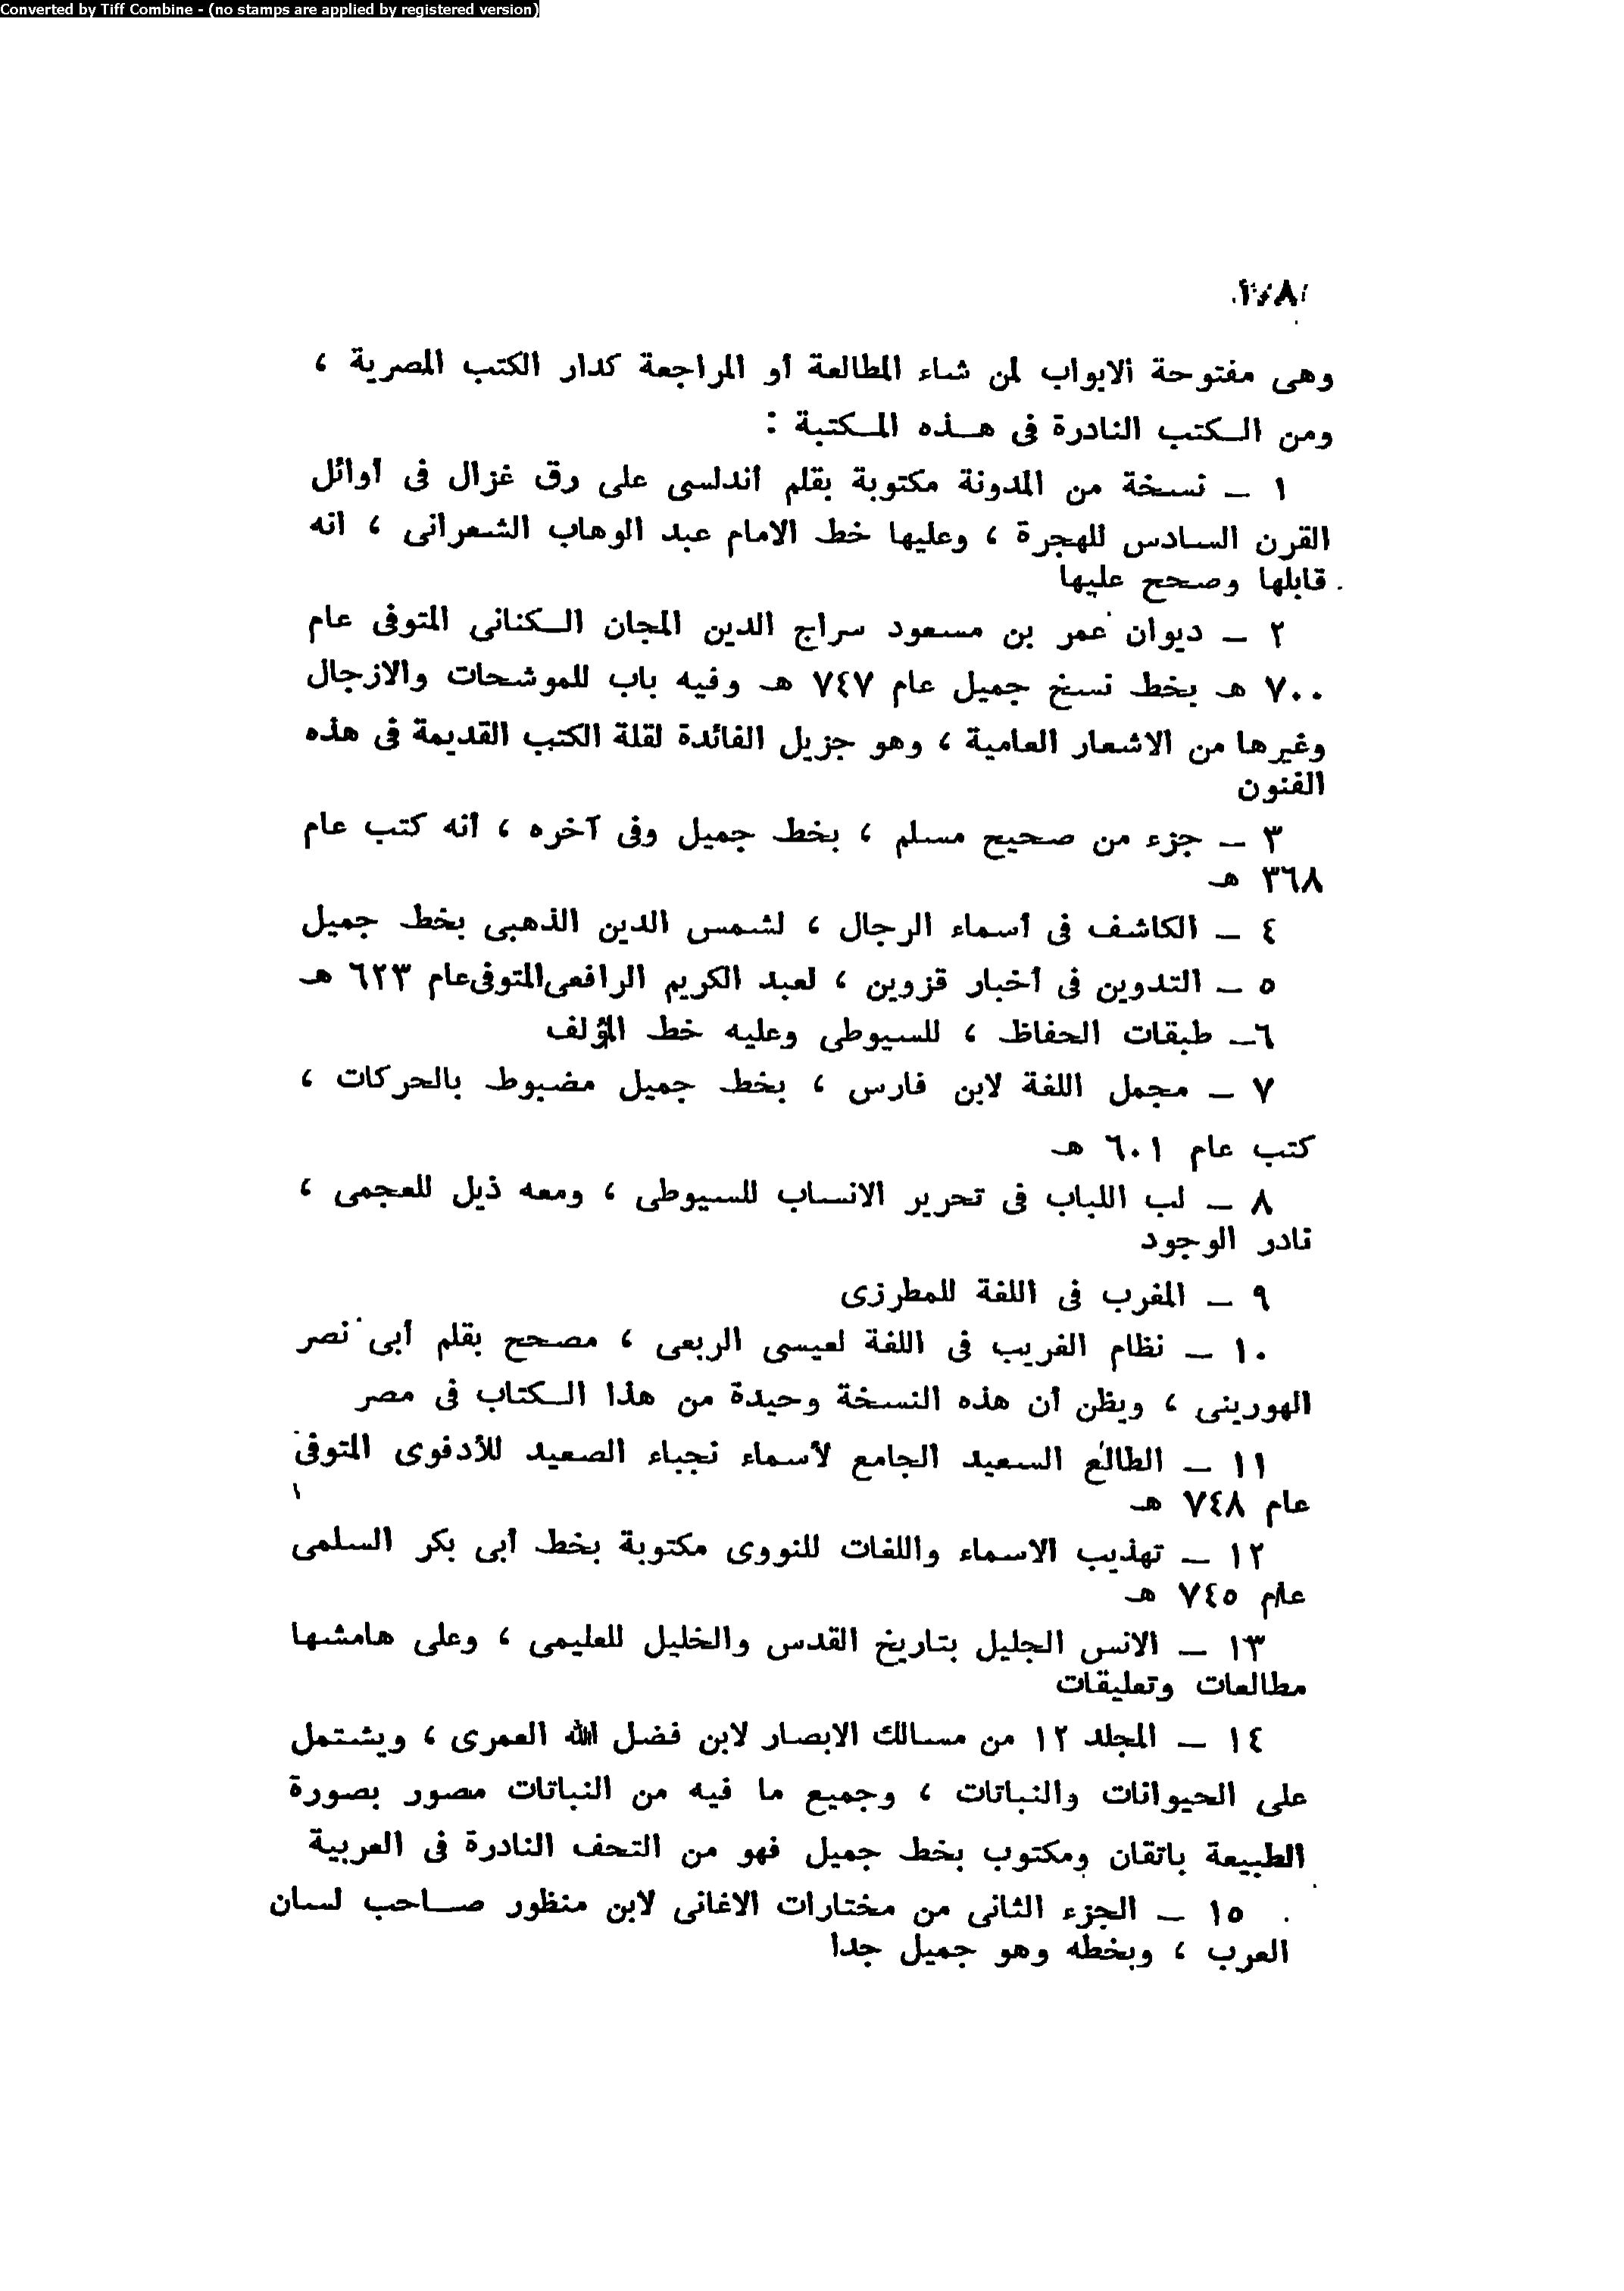 Converted by Tiff Combine - (no stamps are applied by registered version)
وهى مفتوحة الابواب لمن شاء المطالعة أو المراجعة كدار الكتب المصرية ،
ومن الكتب النادرة فى هذه المكتبة :
١ – نسخة من المدونة مكتوبة بقلم أندلسى على رق غزال فى أوائل
القرن السادس للهجرة ، وعليها خط الامام عبد الوهاب الشعرانى ، انه
قابلها وصحح عليها
٢ – ديوان عمر بن مسعود سراج الدين المجان الكنانى المتوفى عام
٧٠٠ هـ بخط نسخ جميل عام ٧٤٧ هـ وفيه باب للموشحات والازجال
وغيرها من الاشعار العامية ، وهو جزيل الفائدة لقلة الكتب القديمة فى هذه
الفنون
٣ – جزء من صحيح مسلم ، بخط جميل وفى آخره ، أنه كتب عام
٣٦٨ هـ
٤ – الكاشف فى أسماء الرجال ، لشمس الدين الذهبى بخط جميل
٥ – التدوين فى أخبار قزوين ، لعبد الكريم الرافعى المتوفى عام ٦٢٣ هـ
٦– طبقات الحفاظ ، للسيوطى وعليه خط المؤلف
٧ – مجمل اللغة لابن فارس ، بخط جميل مضبوط بالحركات ،
كتب عام ٦٠١ هـ
٨ – لب اللباب فى تحرير الانساب للسيوطى ، ومعه ذيل للعجمى ،
نادر الوجود
٩ – المغرب فى اللغة للمطرزى
١٠ – نظام الغريب فى اللغة لعيسى الربعى ، مصحح بقلم أبى نصر
الهورينى ، ويظن أن هذه النسخة وحيدة من هذا الكتاب فى مصر
١١ – الطالع السعيد الجامع لأسماء نجباء الصعيد للأدفوى المتوفى
عام ٧٤٨ هـ
١٢ – تهذيب الاسماء واللغات للنووى مكتوبة بخط أبى بكر السلمى
عام ٧٤٥ هـ
١٣ – الانس الجليل بتاريخ القدس والخليل للعليمى ، وعلى هامشها
مطالعات وتعليقات
١٤ – المجلد ١٢ من مسالك الابصار لابن فضل الله العمرى ، ويشتمل
على الحيوانات والنباتات ، وجميع ما فيه من النباتات مصور بصورة
الطبيعة باتقان ومكتوب بخط جميل فهو من التحف النادرة فى العربية
١٥ – الجزء الثانى من مختارات الاغانى لابن منظور صاحب لسان
العرب ، وبخطه وهو جميل جدا